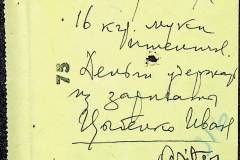 16 кгр. муки
пшеничн.
75
Деньги удержать
из зарплаты
Цыбенко Иван